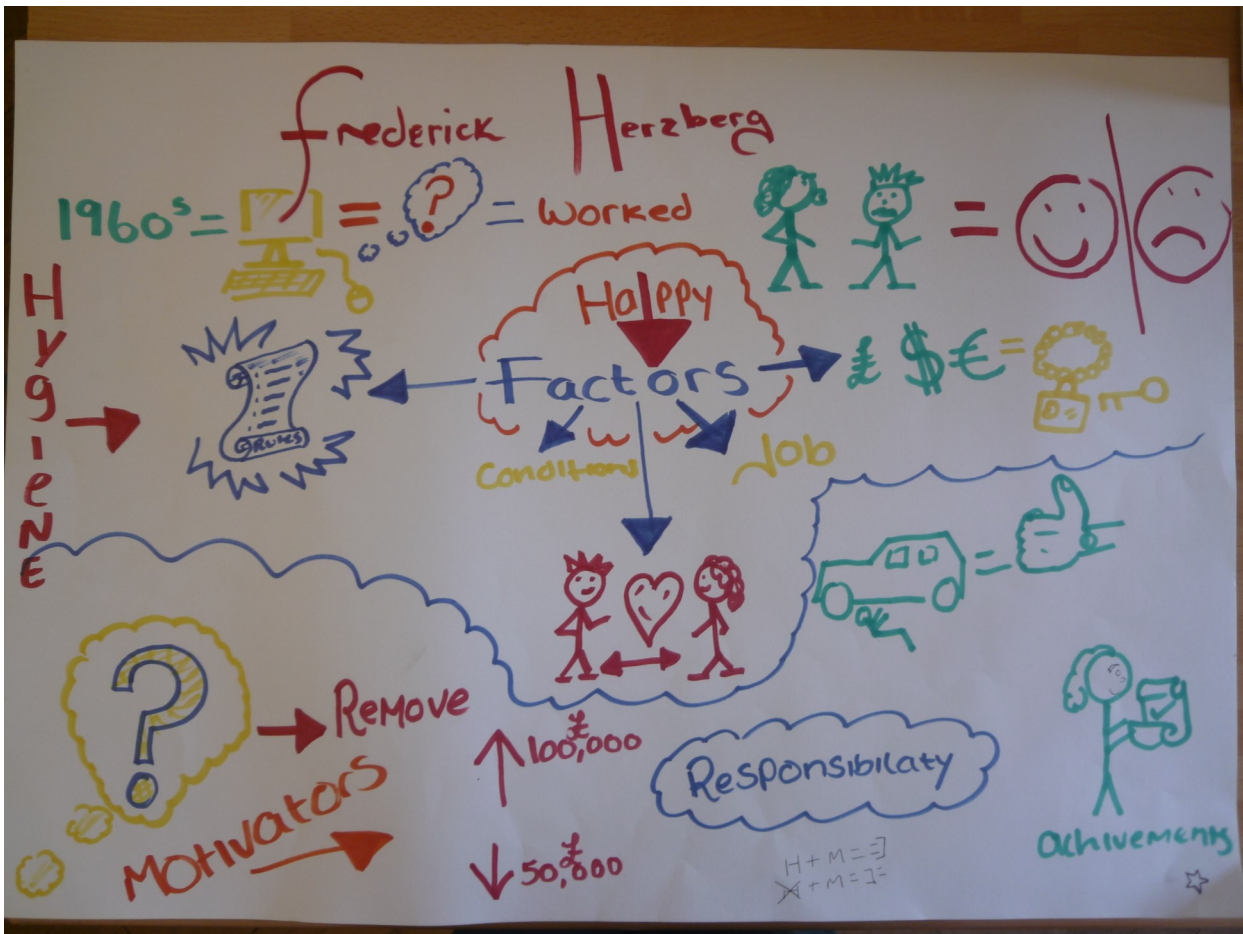 Frederick Herzberg
1960s = ? = worked
=
Happy
Factors
£ $ € =
Hygiene
RULES
Conditions
Job
=
?
Remove
Motivators
£
100,000
£
50,000
Responsibilaty
achivements
H + M = =]
+ M = ]=